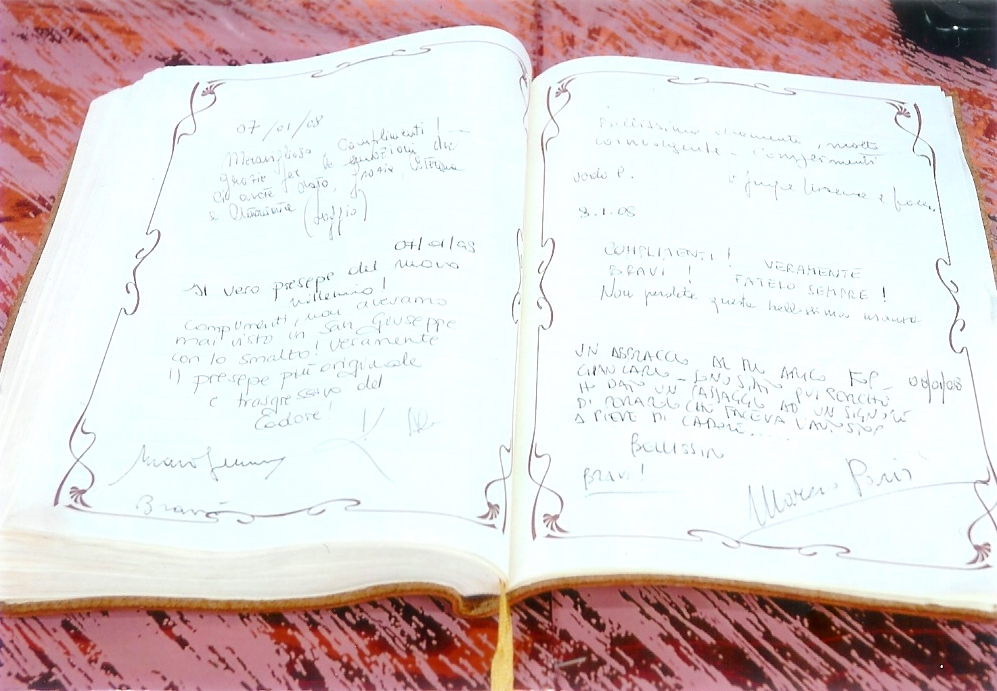 07/01/08
Meraviglioso Complimenti!
grazie per le emozioni che
ci avete dato, grazie, Cristina
e (Reggio)
07/01/08
Il vero presepe del nuovo
millennio!
Complimenti, non avevamo
mai visto in San Giuseppe
con lo smalto! Veramente
il presepe più originale
e trasgressivo del
Cadore!
Bravi
veramente, molto
coinvolgente - Complimenti
Vodo P.
8.1.08
COMPLIMENTI! VERAMENTE
BRAVI! FATELO SEMPRE!
Non perdete questa bellissima usanza
UN ABBRACCIO AL MIO AMICO
GIANCARLO - SONO STATO QUI PERCHÈ
HO DATO UN PASSAGGIO AD UN SIGNORE
DI CHE FACEVA L'AUTOSTOP
A PIEVE DI CADORE...
BELLISSIMI
BRAVI!
Marco